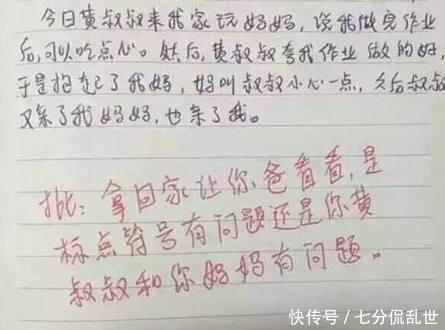 今日黄叔叔来我家玩妈妈，说我做完作业
后，可以吃点心。然后，黄叔叔夸我作业做的好，
于是抱起了我妈，妈叫叔叔小心一点，之后叔叔
又亲了我妈妈，也亲了我。
批：拿回家让你爸看看，是
标点符号有问题还是你黄
叔叔和你妈妈有问题。
快传号／七分侃乱世